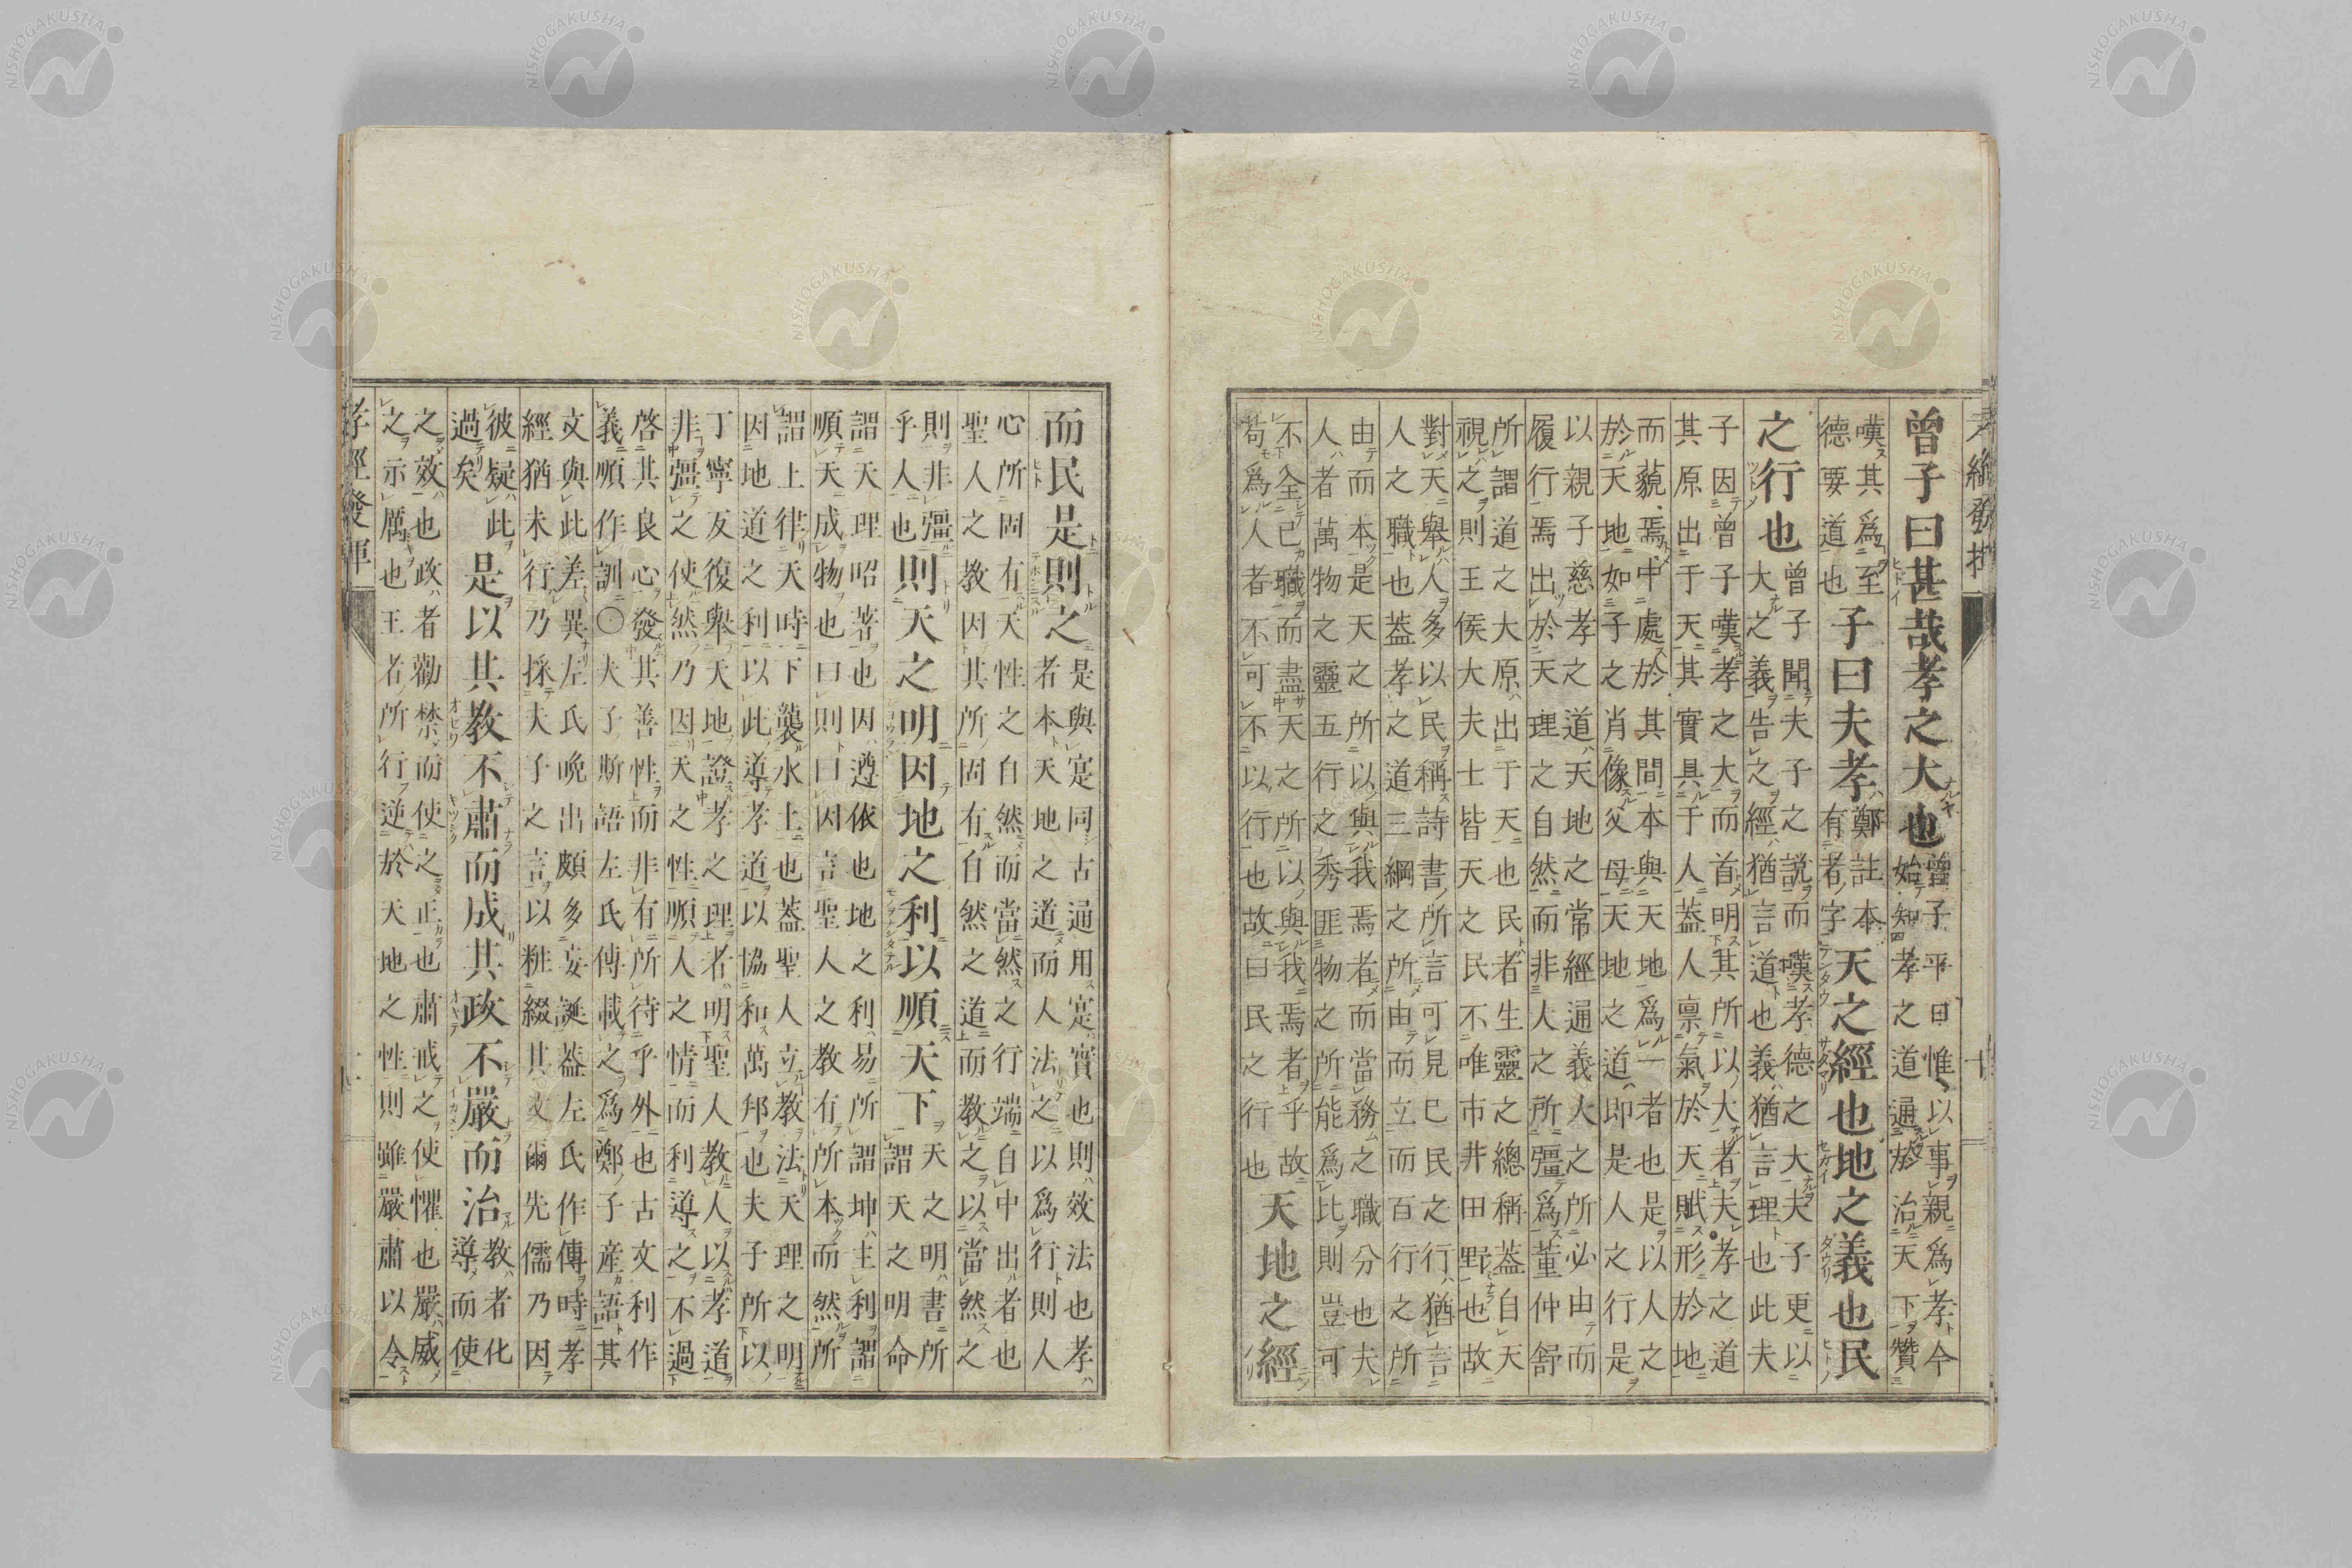 曾子曰甚哉孝之大也
曾子平日惟以事親爲孝今
始知孝之道通於治天下贊
嘆其爲至
德要道也
子曰夫孝
鄭註本
有者字
天之經也地之義也民
之行也
曾子聞夫子之說而嘆孝德之大夫子更以
大之義告之經猶言道也義猶言理也此夫
子因曾子嘆孝之大而首明其所以大者夫孝之道
其原出于天其實具于人蓋人禀氣於天賦形於地
而藐焉中處於其間本與天地爲一者也是以人之
於天地如子之肖像父母天地之道即是人之行是
以親子慈孝之道天地之常經通義人之所必由而
履行焉出於天理之自然而非人之所彊爲董仲舒
所謂道之大原出于天也民者生靈之總稱蓋自天
視之則王侯大夫士皆天之民不唯市井田野也故
對天舉人多以民稱詩書所言可見已民之行猶言
人之職也蓋孝之道三綱之所由而立而百行之所
由而本是天之所以與我焉者而當務之職分也夫
人者萬物之靈五行之秀匪物之所能爲比則豈可
不全己職而盡天之所以與我焉者乎故
苟爲人者不可不以行也故曰民之行也
天地之經
而民是則之
是與寔同古通用寔實也則效法也孝
者本天地之道而人法之以爲行則人
心所固有天性之自然而當然之行端自中出者也
聖人之教因其所固有自然之道而教之以當然之
則非彊
乎人也
則天之明因地之利以順天下
天之明書所
謂天之明命
謂天理昭著也因遵依也地之利易所謂坤主利謂
順天成物也曰則曰因言聖人之教有所本而然所
謂上律天時下襲水土也蓋聖人立教法天理之明
因地道之利以此導孝道以協和萬邦也夫子所以
丁寧反復舉天地證孝之理者明聖人教人以孝道
非彊之使然乃因天之性順人之情而利導之不過
啓其良心發其善性而非有所待乎外也古文利作
義順作訓〇夫子斯語左氏傳載之爲鄭子產語其
文與此差異左氏晩出頗多妄誕蓋左氏作傳時孝
經猶未行乃採夫子之言以粧綴其文爾先儒乃因
彼疑此
過矣
是以其教不肅而成其政不嚴而治
教者化
導而使
之效也政者勸禁而使之正也肅戒之使懼也嚴威
之示厲也王者所行逆於天地之性則雖嚴肅以令
孝經發揮